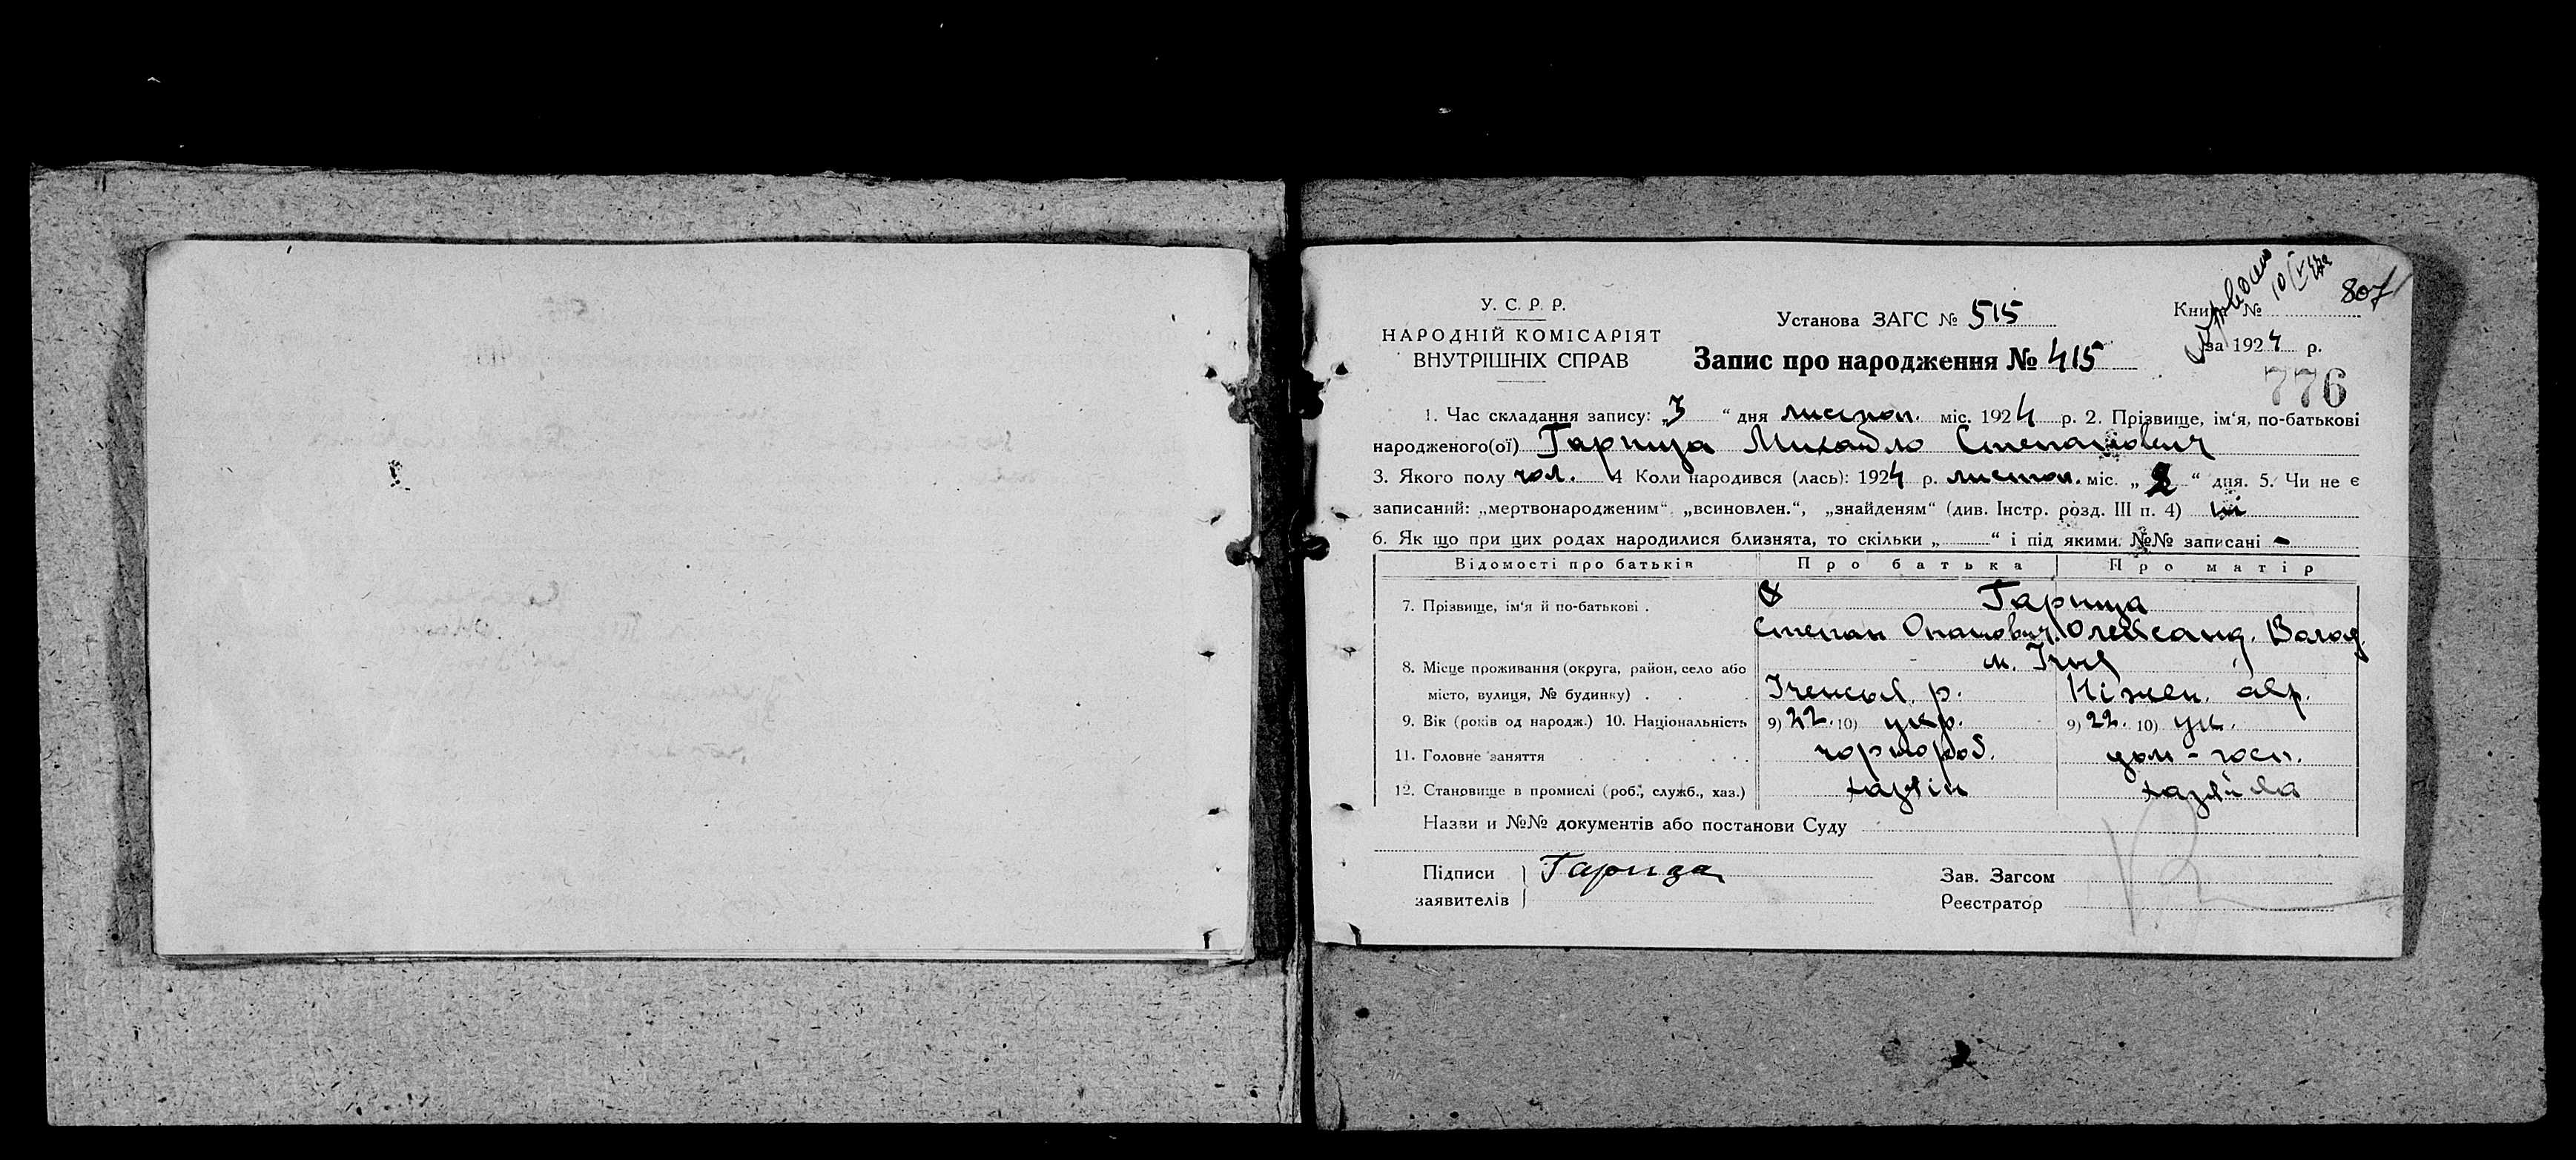 807
У. С. Р. Р.
НАРОДНІЙ КОМІСАРІЯТ
ВНУТРІШНІХ СПРАВ
Установа ЗАГС № 515
Книга №
за 1924 р.
Запис про народження № 415
776
1. Час складання запису: „3“ дня листоп. міс. 1924 р. 2. Прізвище, ім‘я, по-батькові
народженого(ої) Гарища Михайло Степанович
3. Якого полу чол. 4 Коли народився (лась): 1924 р. листоп. міс. „2“ дня. 5. Чи не є
записаний: „мертвонародженим“ „всиновлен.“, „знайденям“ (див. Інстр. розд. III п. 4) ні
6. Як що при цих родах народилися близнята, то скільки „ “ і під якими №№ записані -
Відомості про батьків Про батька Про матір
7. Прізвище, ім‘я й по-батькові . Гарища
Степан Опанович Олександ. Волод.
8. Місце проживання (округа, район, село або м. Ічня
місто, вулиця, № будинку) . . . Іченськ. р. Ніжен. окр.
9. Вік (років од народж.) 10. Національність 9) 22. 10) укр. 9) 22. 10) ук.
11. Головне заняття чорнороб. дом-госп.
12. Становище в промислі (роб., служб., хаз.) хазяїн хазяйка
Назви и №№ документів або постанови Суду
Підписи
заявителів
Зав. Загсом
Реєстратор